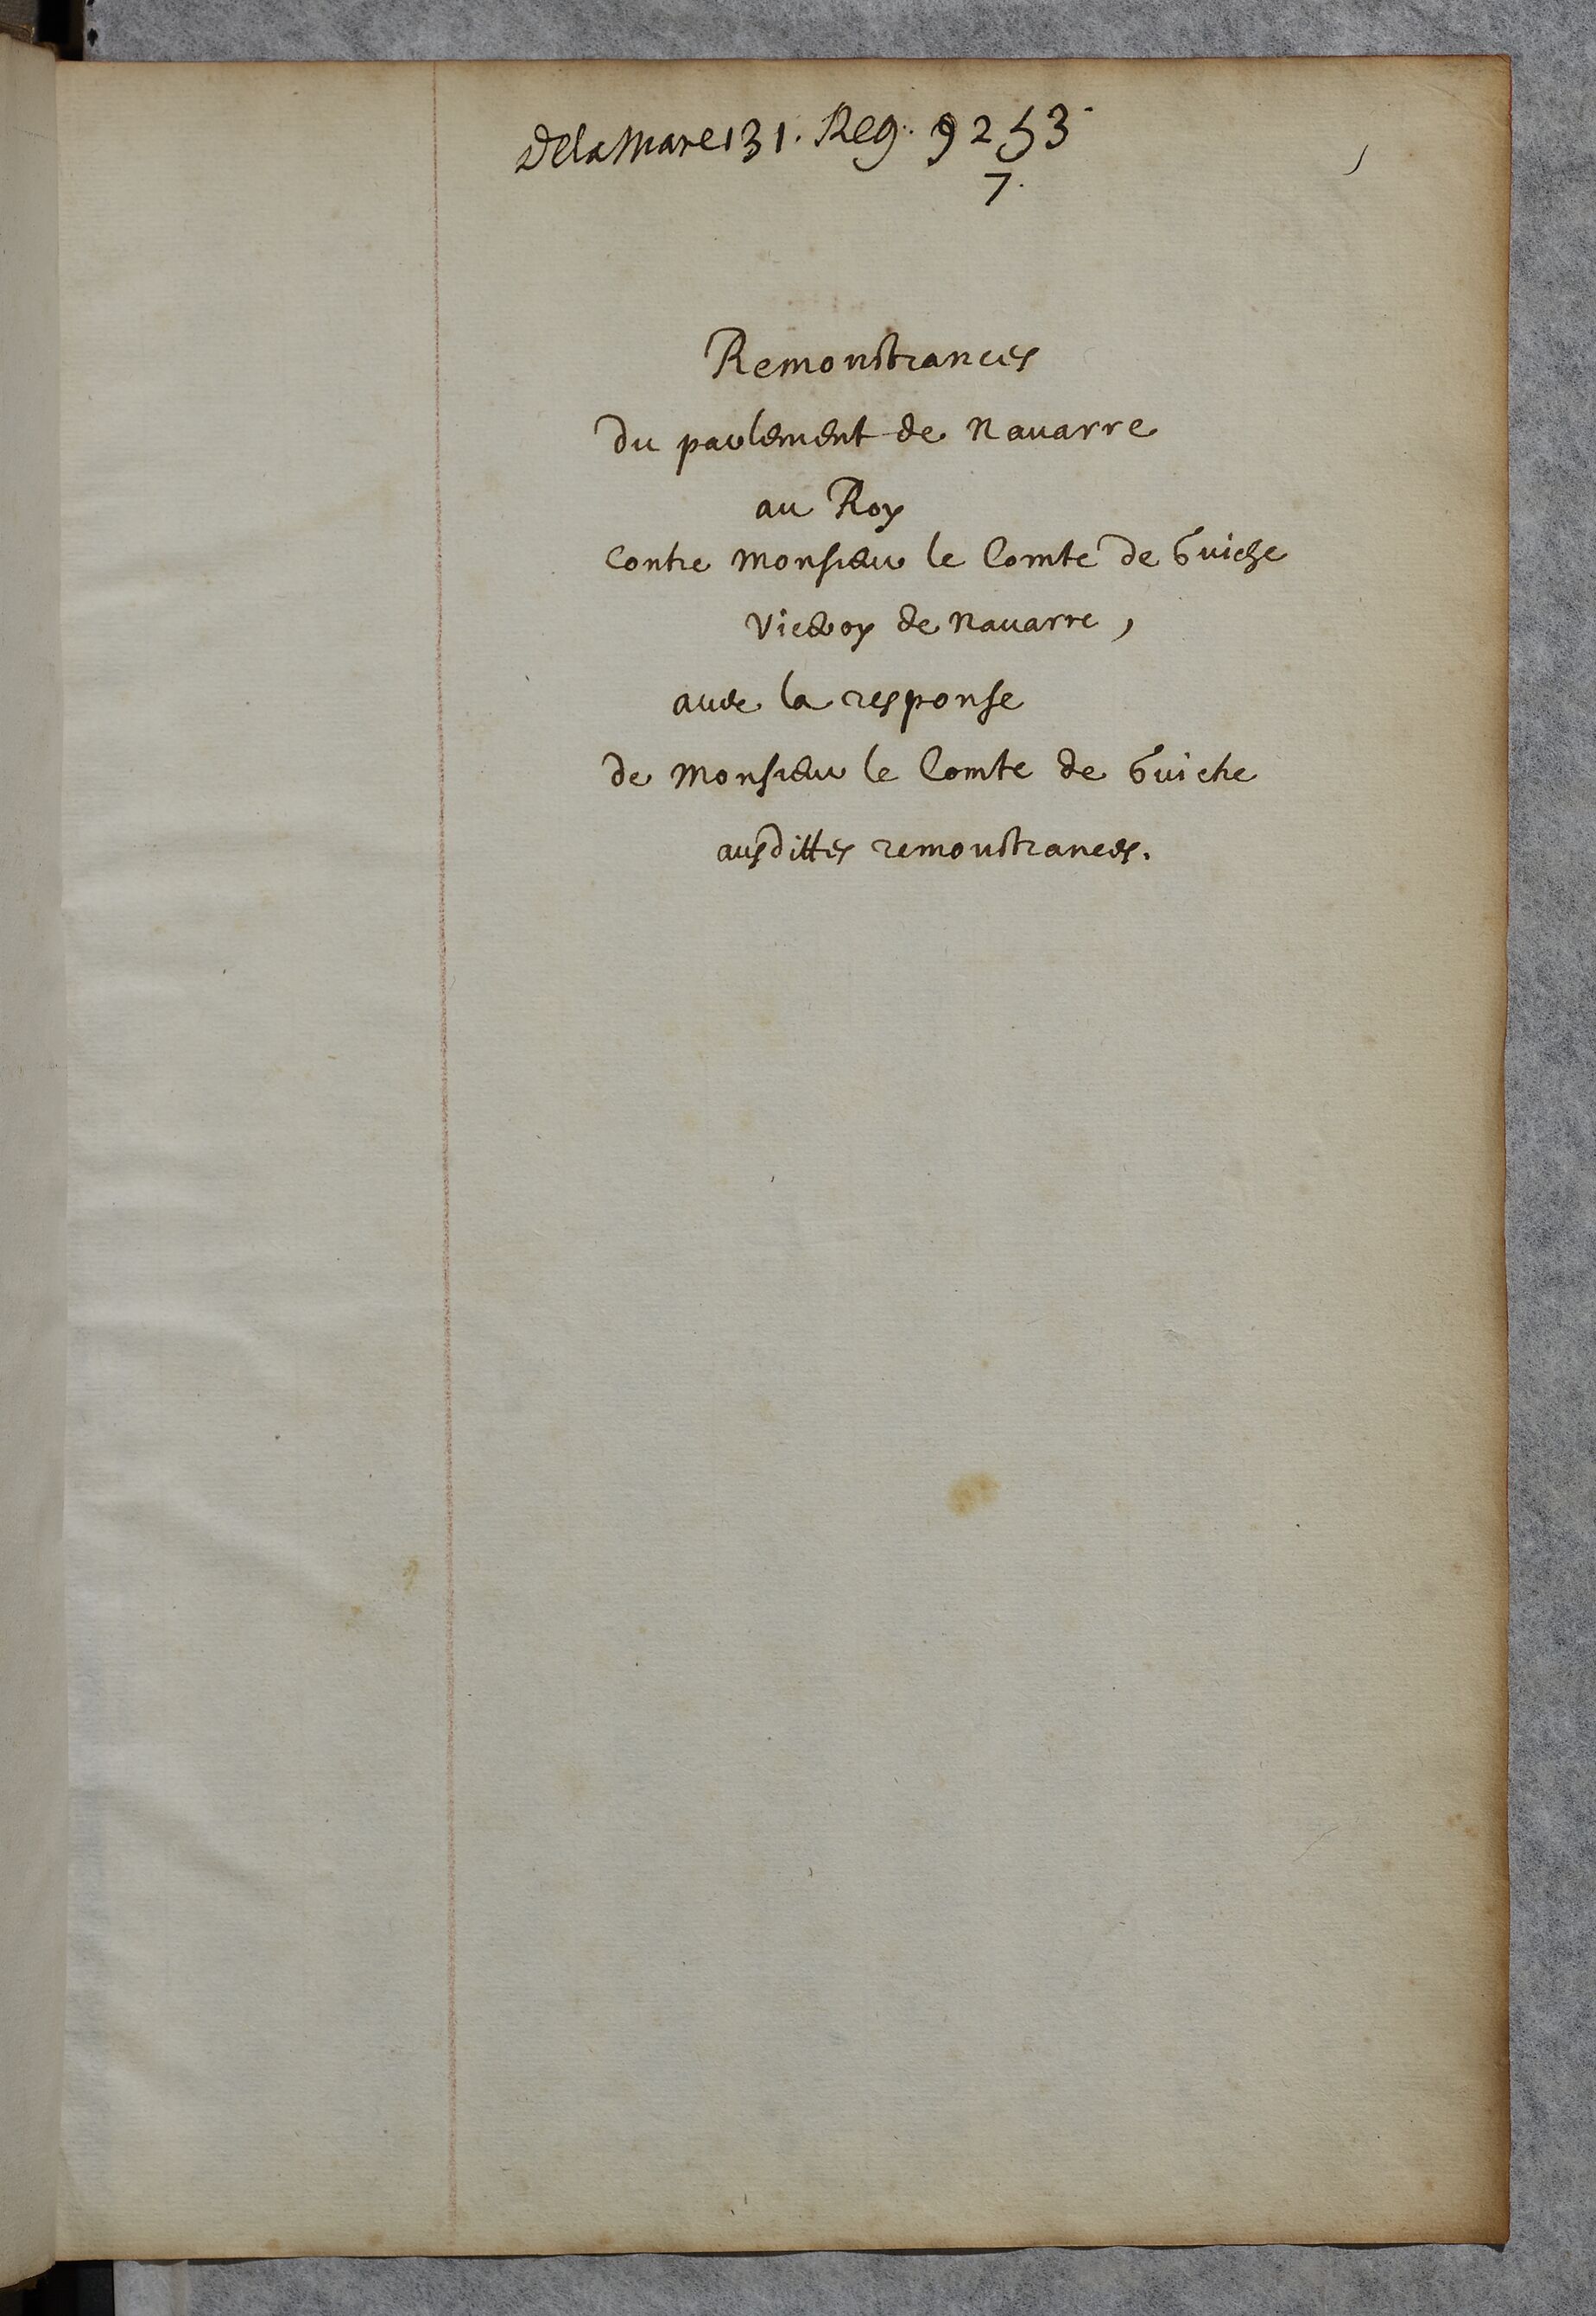 DelaMare 131. Reg. 9253
7.
Remonstrances
du parlement de Nauarre
au Roy
Contre Monsieur le Comte de Guiche
Viceroy de Nauarre,
auec la response
de Monsieur le Comte de Guiche
ausdittes remonstrances.